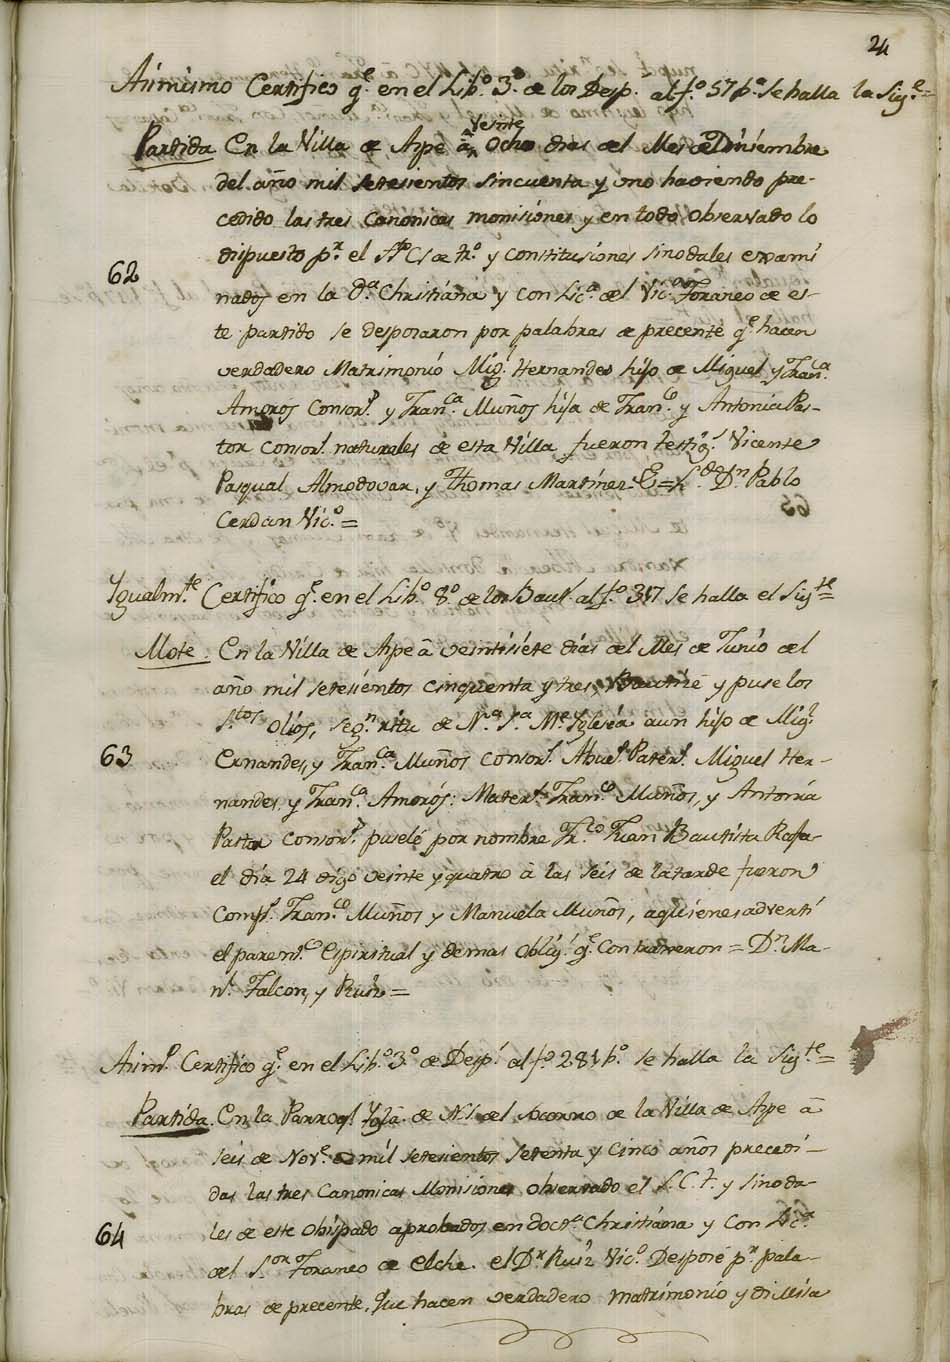 24
Asimismo Certifico q.e en el Lib.o 3.o de los Desp. al f.o 57 b.a se halla la Sig.e =
Partida En la Villa de Aspe â veinte Ocho dias del Mes de Disiembre
del año mil setesientos sincuenta y uno haviendo pre-
cedido las tres Canonicas monisiones y en todo observado lo
dispuesto p.r el S.to C. de tr.o y Constitusiones sinodales exami
62
nados en la D.a Christiana y con Lic.a del Vic.o Foraneo de es-
te partido se desposaron por palabras de precente q.e hacen
verdadero Matrimonio Mig.l Hernandes hijo de Miguel y Fran.ca
Amoros Consor.s y Fran.ca Muños hija de Fran.co y Antonia Pas-
tor consor.s naturales de esta Villa fueron testig.s Vicente
Pasqual Almodovar, y Thomas Martines = L.do D.n Pablo
Cerdan Vic.o =
Ygualm.te Certifico q.e en el Lib.o 8.o de los Baut.s al f.o 317 se halla el Sig.te =
Mote. En la Villa de Aspe â veintisiete dias del Mes de Junio del
año mil setesientos cinquenta y tres, Bautizé y puse los
S.tos Olios, seg.n ritu de N.a S.a M.e Yglesia a un hijo de Mig.l
63
Ernandes, y Fran.ca Muños Consor.s Abue.s Pater.s Miguel Her-
nandes y Fran.ca Amorós: Mater.s Fran.co Muños, y Antonia
Pastor Consor.s puselé por nombre Fr.co Juan Bautista Rafa-
el dia 24 digo veinte y quatro â las seis de la tarde fueron
Comp.s Fran.co Muños y Manuela Muños, aquienes advertí
el paren.co Espiritual y demas Oblig.s q.e Contraheron = D.n Ma-
n.l Falcon, y Ruiz =
Asim.o Certifico q.e en el Lib.o 3.o de Desp.s al f.o 281 b.o se halla la Sig.te =
Partida. En la Parroq.l Ygla. de N.S. del Socorro de la Villa de Aspe â
seis de Nov.e de mil setesientos setenta y cinco años precedi-
das las tres Canonicas Monisiones observado el S.C.T. y sinoda-
64
les de este obispado aprobados en doct.a Christiana y con Lic.a
del S.or Foraneo de Elche. el D.r Ruiz Vic.o Desposé p.r pala-
bras de precente, que hacen verdadero matrimonio y di Misa